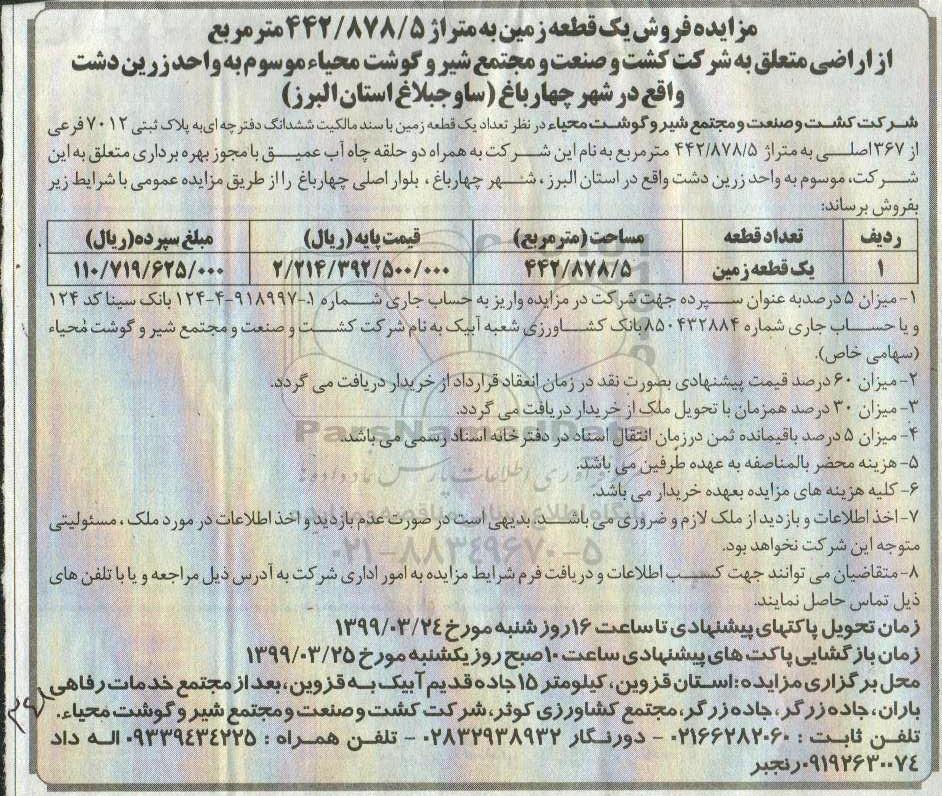 مزایده فروش یک قطعه زمین به متراژ ۴۴۲/۸۷۸/۵ مترمربع
از اراضی متعلق به شرکت کشت و صنعت و مجتمع شیر و گوشت محیاء موسوم به واحد زرین دشت
واقع در شهر چهارباغ (ساوجبلاغ استان البرز)
شرکت کشت و صنعت و مجتمع شیر و گوشت محیاء در نظر تعداد یک قطعه زمین با سند مالکیت ششدانگ دفترچه ای به پلاک ثبتی ۷۰۱۲ فرعی
از ۳۶۷ اصلی به متراژ ۴۴۲/۸۷۸/۵ مترمربع به نام این شرکت به همراه دو حلقه چاه آب عمیق با مجوز بهره برداری متعلق به این
شرکت، موسوم به واحد زرین دشت واقع در استان البرز، شهر چهارباغ، بلوار اصلی چهارباغ را از طریق مزایده عمومی با شرایط زیر
بفروش برساند:
ردیف تعداد قطعه مساحت (مترمربع) قیمت پایه (ریال) مبلغ سپرده (ریال)
۱ یک قطعه زمین ۴۴۲/۸۷۸/۵ ۲/۲۱۴/۳۹۲/۵۰۰/۰۰۰ ۱۱۰/۷۱۹/۶۲۵/۰۰۰
۱- میزان ۵ درصد به عنوان سپرده جهت شرکت در مزایده واریز به حساب جاری شماره ۱-۹۱۸۹۹۷-۴-۱۲۴ بانک سینا کد ۱۲۴
و یا حساب جاری شماره ۸۵۰۴۳۲۸۸۴ بانک کشاورزی شعبه آبیک به نام شرکت کشت و صنعت و مجتمع شیر و گوشت محیاء
(سهامی خاص).
۲- میزان ۶۰ درصد قیمت پیشنهادی بصورت نقد در زمان انعقاد قرارداد از خریدار دریافت می گردد.
۳- میزان ۳۰ درصد همزمان با تحویل ملک از خریدار دریافت می گردد.
۴- میزان ۵ درصد باقیمانده ثمن در زمان انتقال اسناد در دفترخانه اسناد رسمی می باشد.
۵- هزینه محضر بالمناصفه به عهده طرفین می باشد.
۶- کلیه هزینه های مزایده بعهده خریدار می باشد.
۷- اخذ اطلاعات و بازدید از ملک لازم و ضروری می باشد. بدیهی است در صورت عدم بازدید و اخذ اطلاعات در مورد ملک، مسئولیتی
متوجه این شرکت نخواهد بود.
۸- متقاضیان می توانند جهت کسب اطلاعات و دریافت فرم شرایط مزایده به امور اداری شرکت به آدرس ذیل مراجعه و یا با تلفن های
ذیل تماس حاصل نمایند.
زمان تحویل پاکتهای پیشنهادی تا ساعت ۱۶ روز شنبه مورخ ۱۳۹۹/۰۳/۲۴
زمان بازگشایی پاکت های پیشنهادی ساعت ۱۰ صبح روز یکشنبه مورخ ۱۳۹۹/۰۳/۲۵
محل برگزاری مزایده: استان قزوین، کیلومتر ۱۵ جاده قدیم آبیک به قزوین، بعد از مجتمع خدمات رفاهی
باران، جاده زرگر، جاده زرگر، مجتمع کشاورزی کوثر، شرکت کشت و صنعت و مجتمع شیر و گوشت محیاء.
تلفن ثابت : ۰۲۱۶۶۲۸۲۰۶۰ - دورنگار ۰۲۸۳۲۹۳۸۹۳۲ - تلفن همراه : ۰۹۳۳۹۴۳۴۲۲۵ اله داد
۰۹۱۹۲۶۳۰۰۷۴ رنجبر
ParsNamadData
فرآوری اطلاعات پارس نماد داده ها
پایگاه اطلاع رسانی مناقصه و مزایده
۰۲۱-۸۸۳۴۹۶۷۰-۵